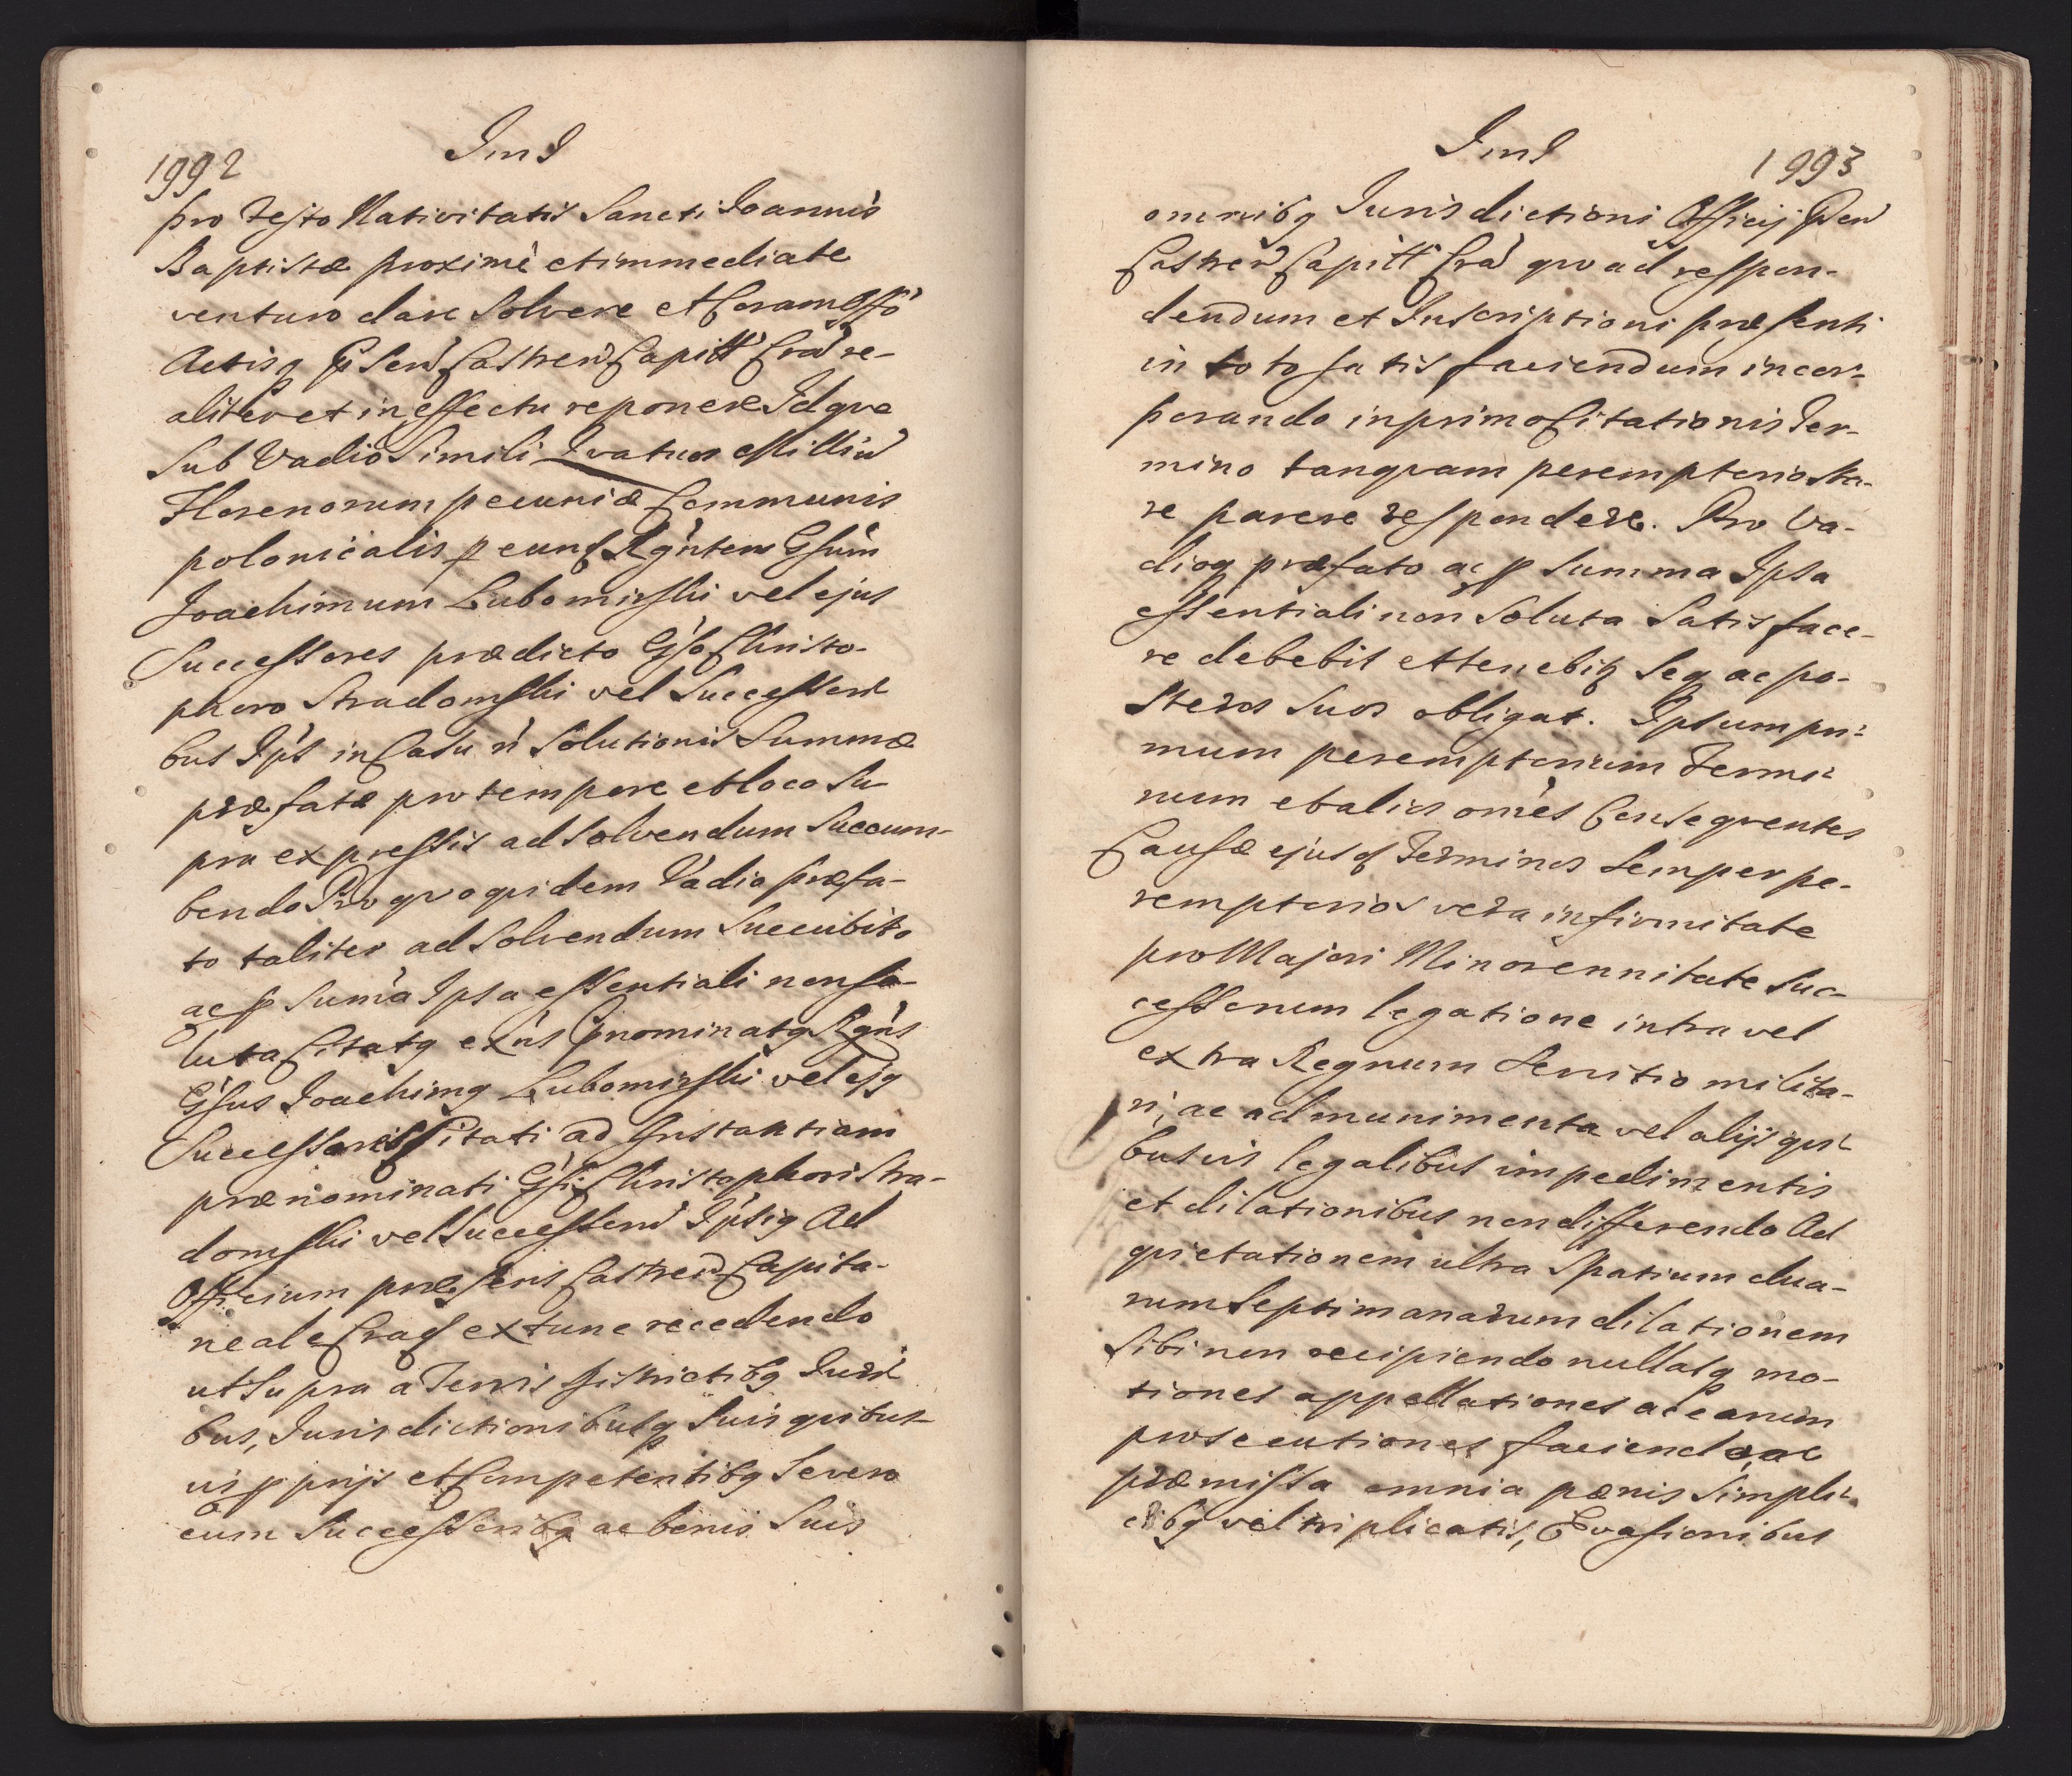 1992
Jm J
pro Festo Nativitatis Sancti Joannis
Baptistæ proximè et immediate
venturo dare Solvere et Coram Offo
Actisq Psen Castren Capitt Crac re-
aliter et in effectu reponere Idque
Sub Vadio Simili Quatuor Millin
Florenorum pecuniæ Communis
polonicalis p eund Rgntem Gsum
Joachimum Lubomirski vel ejus
Successores prædicto Gso Christo-
phoro Stradomski vel Successori
bus Ips in Casu ñ Solutionis Summæ
præfatæ pro tempore et loco Su-
pra expressis ad Solvendum Succum-
bendo Pro quo quidem Vadio præfa-
to taliter ad Solvendum Succubito
ac p Suma Ipsa essentiali non so-
luta Citatq exns Pnominatq Rgns
Gsus Joachimq Lubomirski vel ejq
Successores Citati ad Instantiam
prænominati Gsi Christophori Stra-
domski vel Successoru Ipsiq Ad
Officium præsens Castren Capita-
neale Crac extunc recedendo
ut Supra a Terris Districtibq Juri
bus, Jurisdictionibusq Suis quibus-
vis pprijs et Competentibq Se vero
cum Successoribq ac bonis Suis
Jm J
1993
omnibq Jurisdictioni Officij Psen
Castren Capitt Crac quoad respon-
dendum et Inscriptioni præsenti
in toto satis faciendum incor-
porando in primo Citationis Ter-
mino tanquam peremptorio sta-
re parere respondere. Pro Va-
dioq præfato ac p Summa Ipsa
essentiali non Soluta Satis face-
re debebit et tenebitq Seq ac po-
steros Suos obligat. Ipsum pri-
mum peremptorium Termi-
num et alios omes Consequentes
Causæ ejusd Terminos Semper pe-
remptorios vera infirmitate
pro Majori Minorennitate Suc-
cessorum legatione intra vel
extra Regnum Servitio milita-
ri, ac ad munimenta vel alijs qui-
busvis legalibus impedimentis
et dilationibus non differendo Ad
quietationem ultra Spatium dua-
rum Septimanarum dilationem
Sibi non recipiendo nullasq mo-
tiones appellationes ac earum
prosecutiones faciendo, ac
præmissa omnia pænis Simpli-
cibq vel triplicatis, Evasionibus